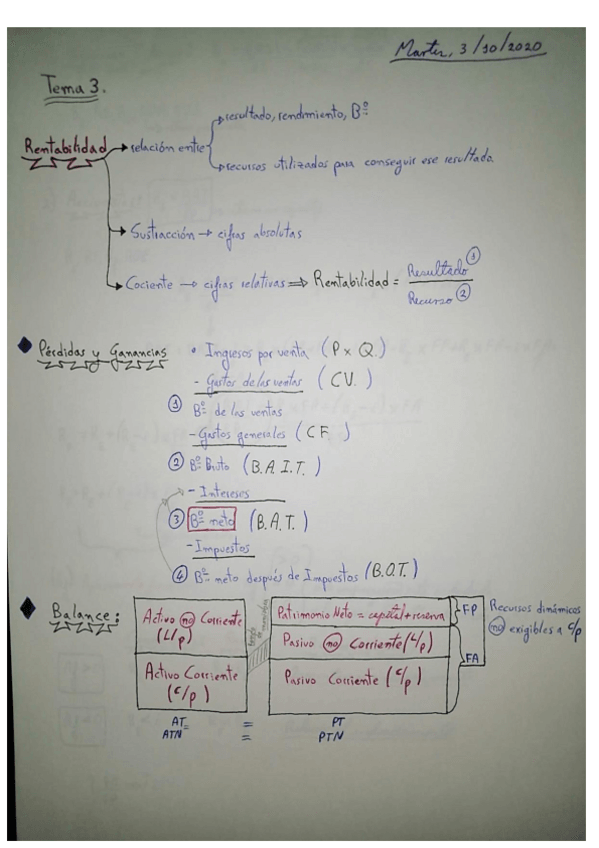 Martes, 3/10/2020
Tema 3.
resultado, rendimiento, Bº
Rentabilidad → relación entre
recursos utilizados para conseguir ese resultado
Sustracción → cifras absolutas
Cociente → cifras relativas ⇒ Rentabilidad = Resultado ① / Recurso ②
Pérdidas y Ganancias • Ingresos por venta (P x Q.)
- Gastos de las ventas (CV.)
① Bº de las ventas
- Gastos generales (C F.)
② Bº Bruto (B.A.I.T.)
- Intereses
③ Bº neto (B.A.T.)
- Impuestos
④ Bº neto después de Impuestos (B.D.T.)
Balance:
Activo no Corriente
(L/p)
Activo Corriente
(c/p)
Fondo de maniobra
Patrimonio Neto = capital + reserva
Pasivo no Corriente (L/p)
Pasivo Corriente (c/p)
FP
FA
Recursos dinámicos
no exigibles a c/p
AT = PT
ATN = PTN